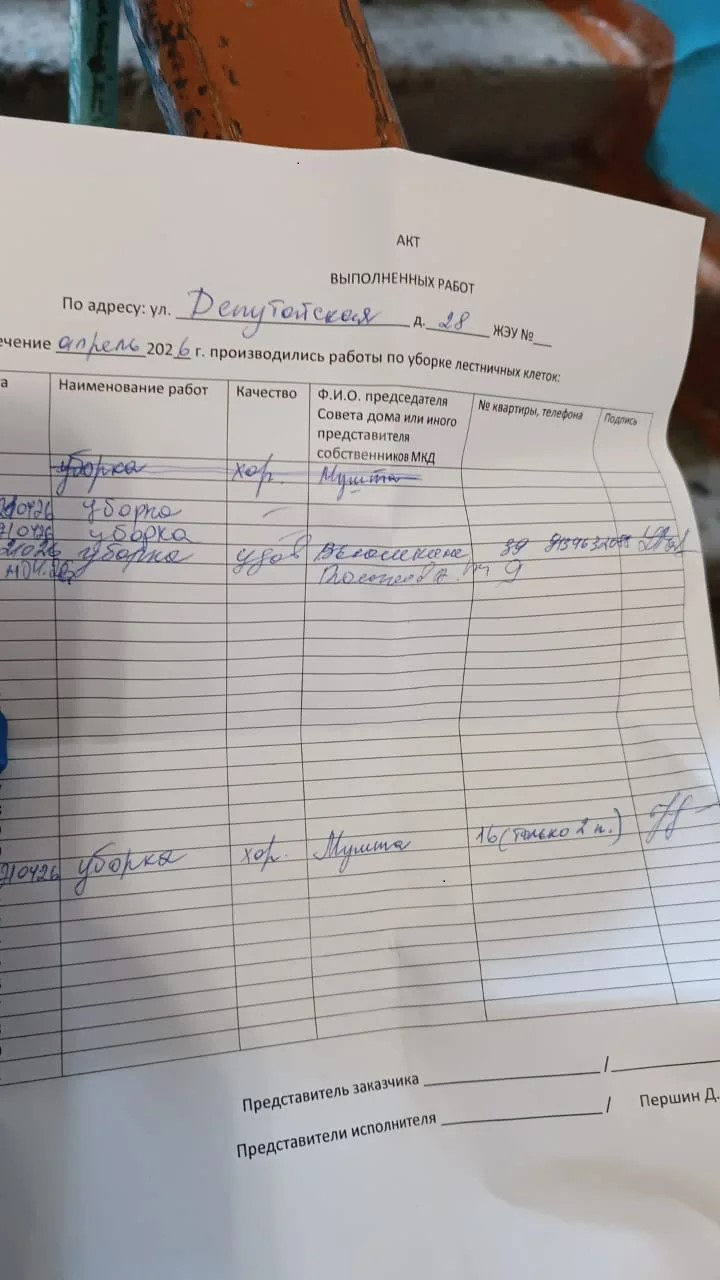 АКТ
ВЫПОЛНЕННЫХ РАБОТ
По адресу: ул. Депутатская д. 28 ЖЭУ №
ечение апрель 2026 г. производились работы по уборке лестничных клеток:
а Наименование работ Качество Ф.И.О. председателя Совета дома или иного представителя собственников МКД № квартиры, телефона Подпись
уборка хор. Мушта
210426 уборка
210426 уборка
уборка удов 39
9
210426 уборка хор. Мушта 16 (только 2 п.)
Представитель заказчика /
Представители исполнителя / Першин Д.